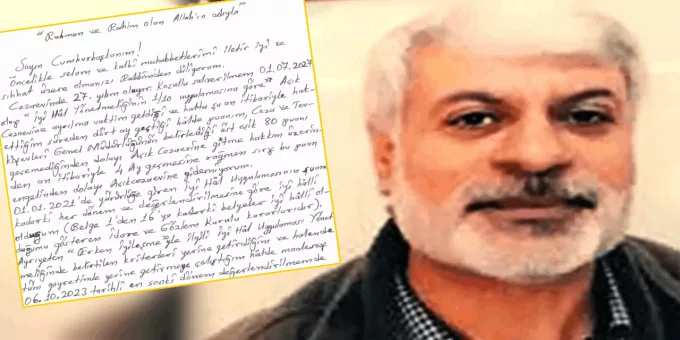 "Rahman ve Rahim olan Allah'ın adıyla"
Sayın Cumhurbaşkanım!
Öncelikle selam ve kalbi muhabbetlerimi iletir iyi ve
sıhhat üzere olmanızı Rabbimden diliyorum.
Cezaevinde 27. yılım oluyor. Koşullu salıverilmem 01.07.2027
olup "İyi Hâl Yönetmeliğinin 1/10 uygulamasına göre" Açık
Cezaevine ayrılma vaktim geldiği ve hatta şu an itibariyle hak-
ettiğim süreden dört ay geçtiği hâlde puanım, Ceza ve Tev-
kifevleri Genel Müdürlüğünün belirlediği üst eşik 80 puanı
geçemediğinden dolayı Açık Cezaevine gitme hakkım üzerin-
den an itibariyle 4 Ay geçmesine rağmen sırf bu puan
engelinden dolayı Açıkcezaevine gidemiyorum.
01.01.2021'de yürürlüğe giren İyi Hâl Uygulamasının
kadarki her dönem ve değerlendirilmesine göre iyi hâlli
olduğum (Belge 1'den 16'ya kadarki belgeler iyi hâlli ol-
duğumu gösteren İdare ve Gözlem Kurulu kararlarıdır).
Ayrıyeten "Erken iyileşme"yle ilgili İyi Hâl Uygulaması Yönet-
meliğinde belirtilen kriterleri yerine getirdiğim ve halende
tüm gayretimle yerine getirmeye çalıştığım hâlde maalesef
06.10.2023 tarihli en sonki dönem değerlendirilmemde